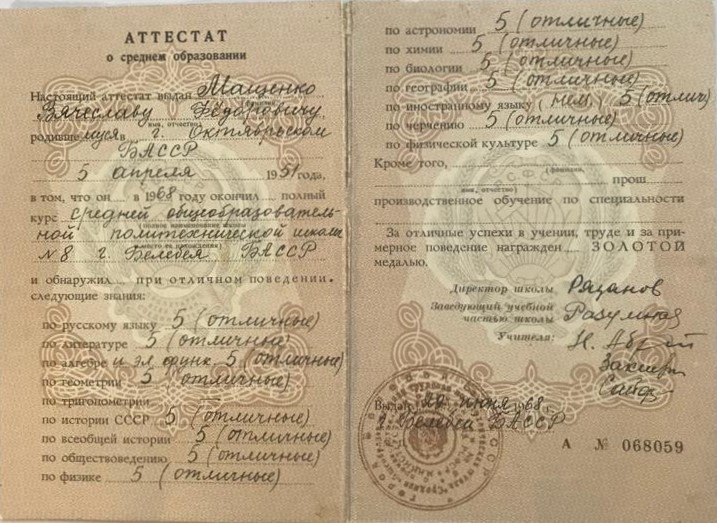 АТТЕСТАТ
о среднем образовании
Настоящий аттестат выдан Мащенко
Вячеславу Фёдоровичу,
имя, отчество)
родившемуся в г. Октябрьском
БАССР
5 апреля 1951 года,
в том, что он в 1968 году окончил полный
курс средней общеобразователь-
(полное наименование школы
ной политехнической школы
и место ее нахождения)
№8 г. Белебея, БАССР
и обнаружил при отличном поведении.
следующие знания:
по русскому языку 5 (отличные)
по литературе 5 (отличные)
по алгебре и эл. функ. 5 (отличные)
по геометрии 5 (отличные)
по тригонометрии
по истории СССР 5 (отличные)
по всеобщей истории 5 (отличные)
по обществоведению 5 (отличные)
по физике 5 (отличные)
по астрономии 5 (отличные)
по химии 5 (отличные)
по биологии 5 (отличные)
по географии 5 (отличные)
по иностранному языку (нем.) 5 (отлич)
по черчению 5 (отличные)
по физической культуре 5 (отличные)
Кроме того,
(фамилия,
прош
имя, отчество)
производственное обучение по специальности
За отличные успехи в учении, труде и за при-
мерное поведение награжден ЗОЛОТОЙ
медалью.
Директор школы Рязанов
Заведующий учебной
частью школы Разумная
Учителя:
Выдан 20 июня 1968 г.
г. Белебей БАССР
А № 068059